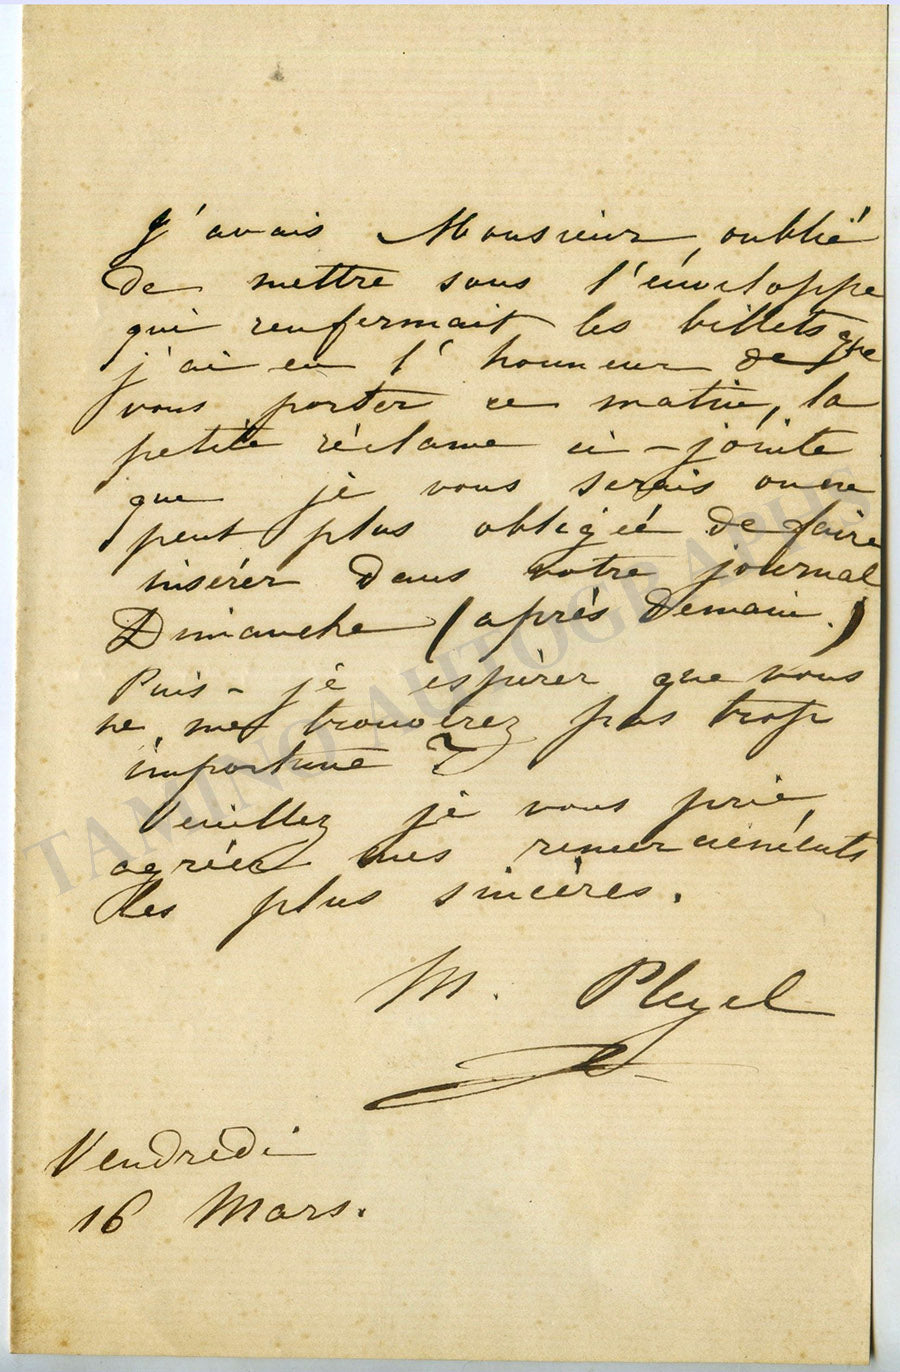 J'avais Monsieur, oublié
de mettre sous l'énveloppe
qui renfermait les billets que
j'ai eu l'honneur de
vous porter ce matin, la
petite réclame ci-jointe
que je vous serais on ne
peut plus obligée de faire
insérer dans votre journal
Dimanche (après demain.)
Puis-je espérer que vous
ne me trouverez pas trop
importune ?
Veuillez je vous prie,
agréer mes remerciements
les plus sincères.
M. Pleyel
Vendredi
16 Mars.
TAMINO AUTOGRAPHS